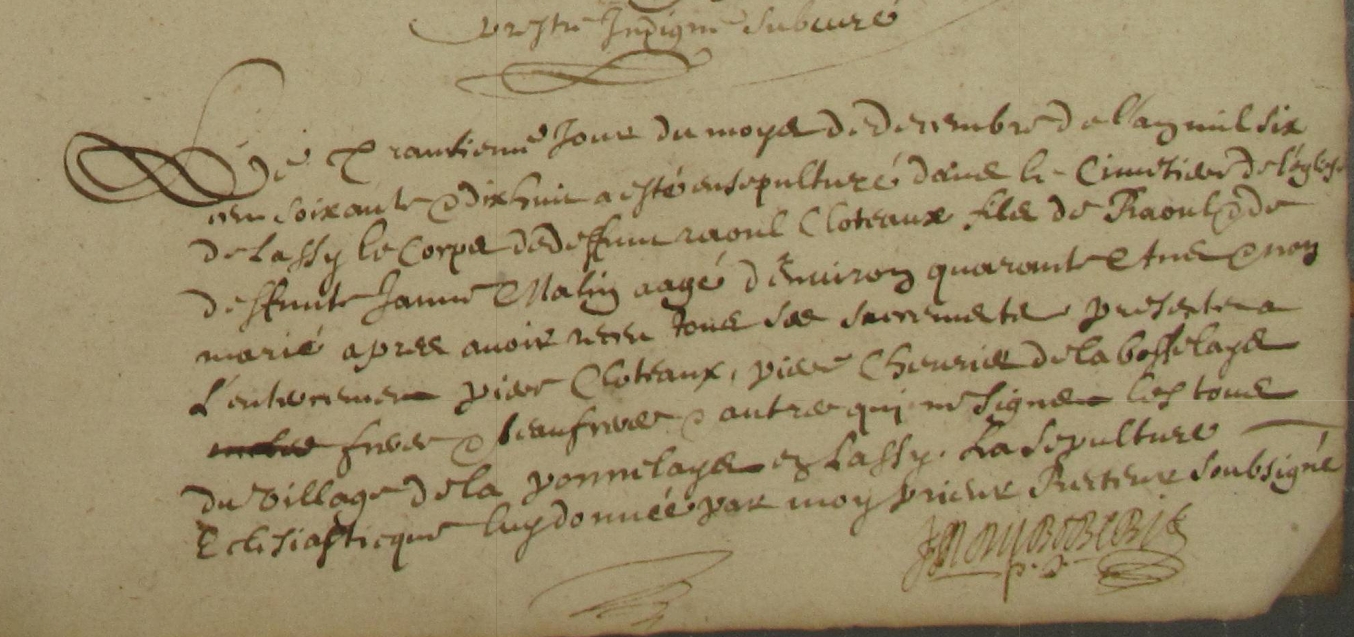 prestre Indigne Subcuré
Le Trantieme Jour du moys de decembre de l'an mil six
cen soixante & dix huit a esté ensepulturé dans le Cimetiere de l'eglise
de Lassy le Corps de deffunt raoul Cloteaux fils de Raoul & de
deffunte Janne Malin aagé d'Environ quarante & & non
marié apres avoir receu tous ses sacrements presents a
L'enterrement pier Cloteaux, pier Chevrier de la bosselays
frere & beaufrere & autres qui ne signe les tous
du village de la ponnelays en Lassy. La Sepulture
Eclesiasticque luy donnée par moy prieur Recteur Soubsigné